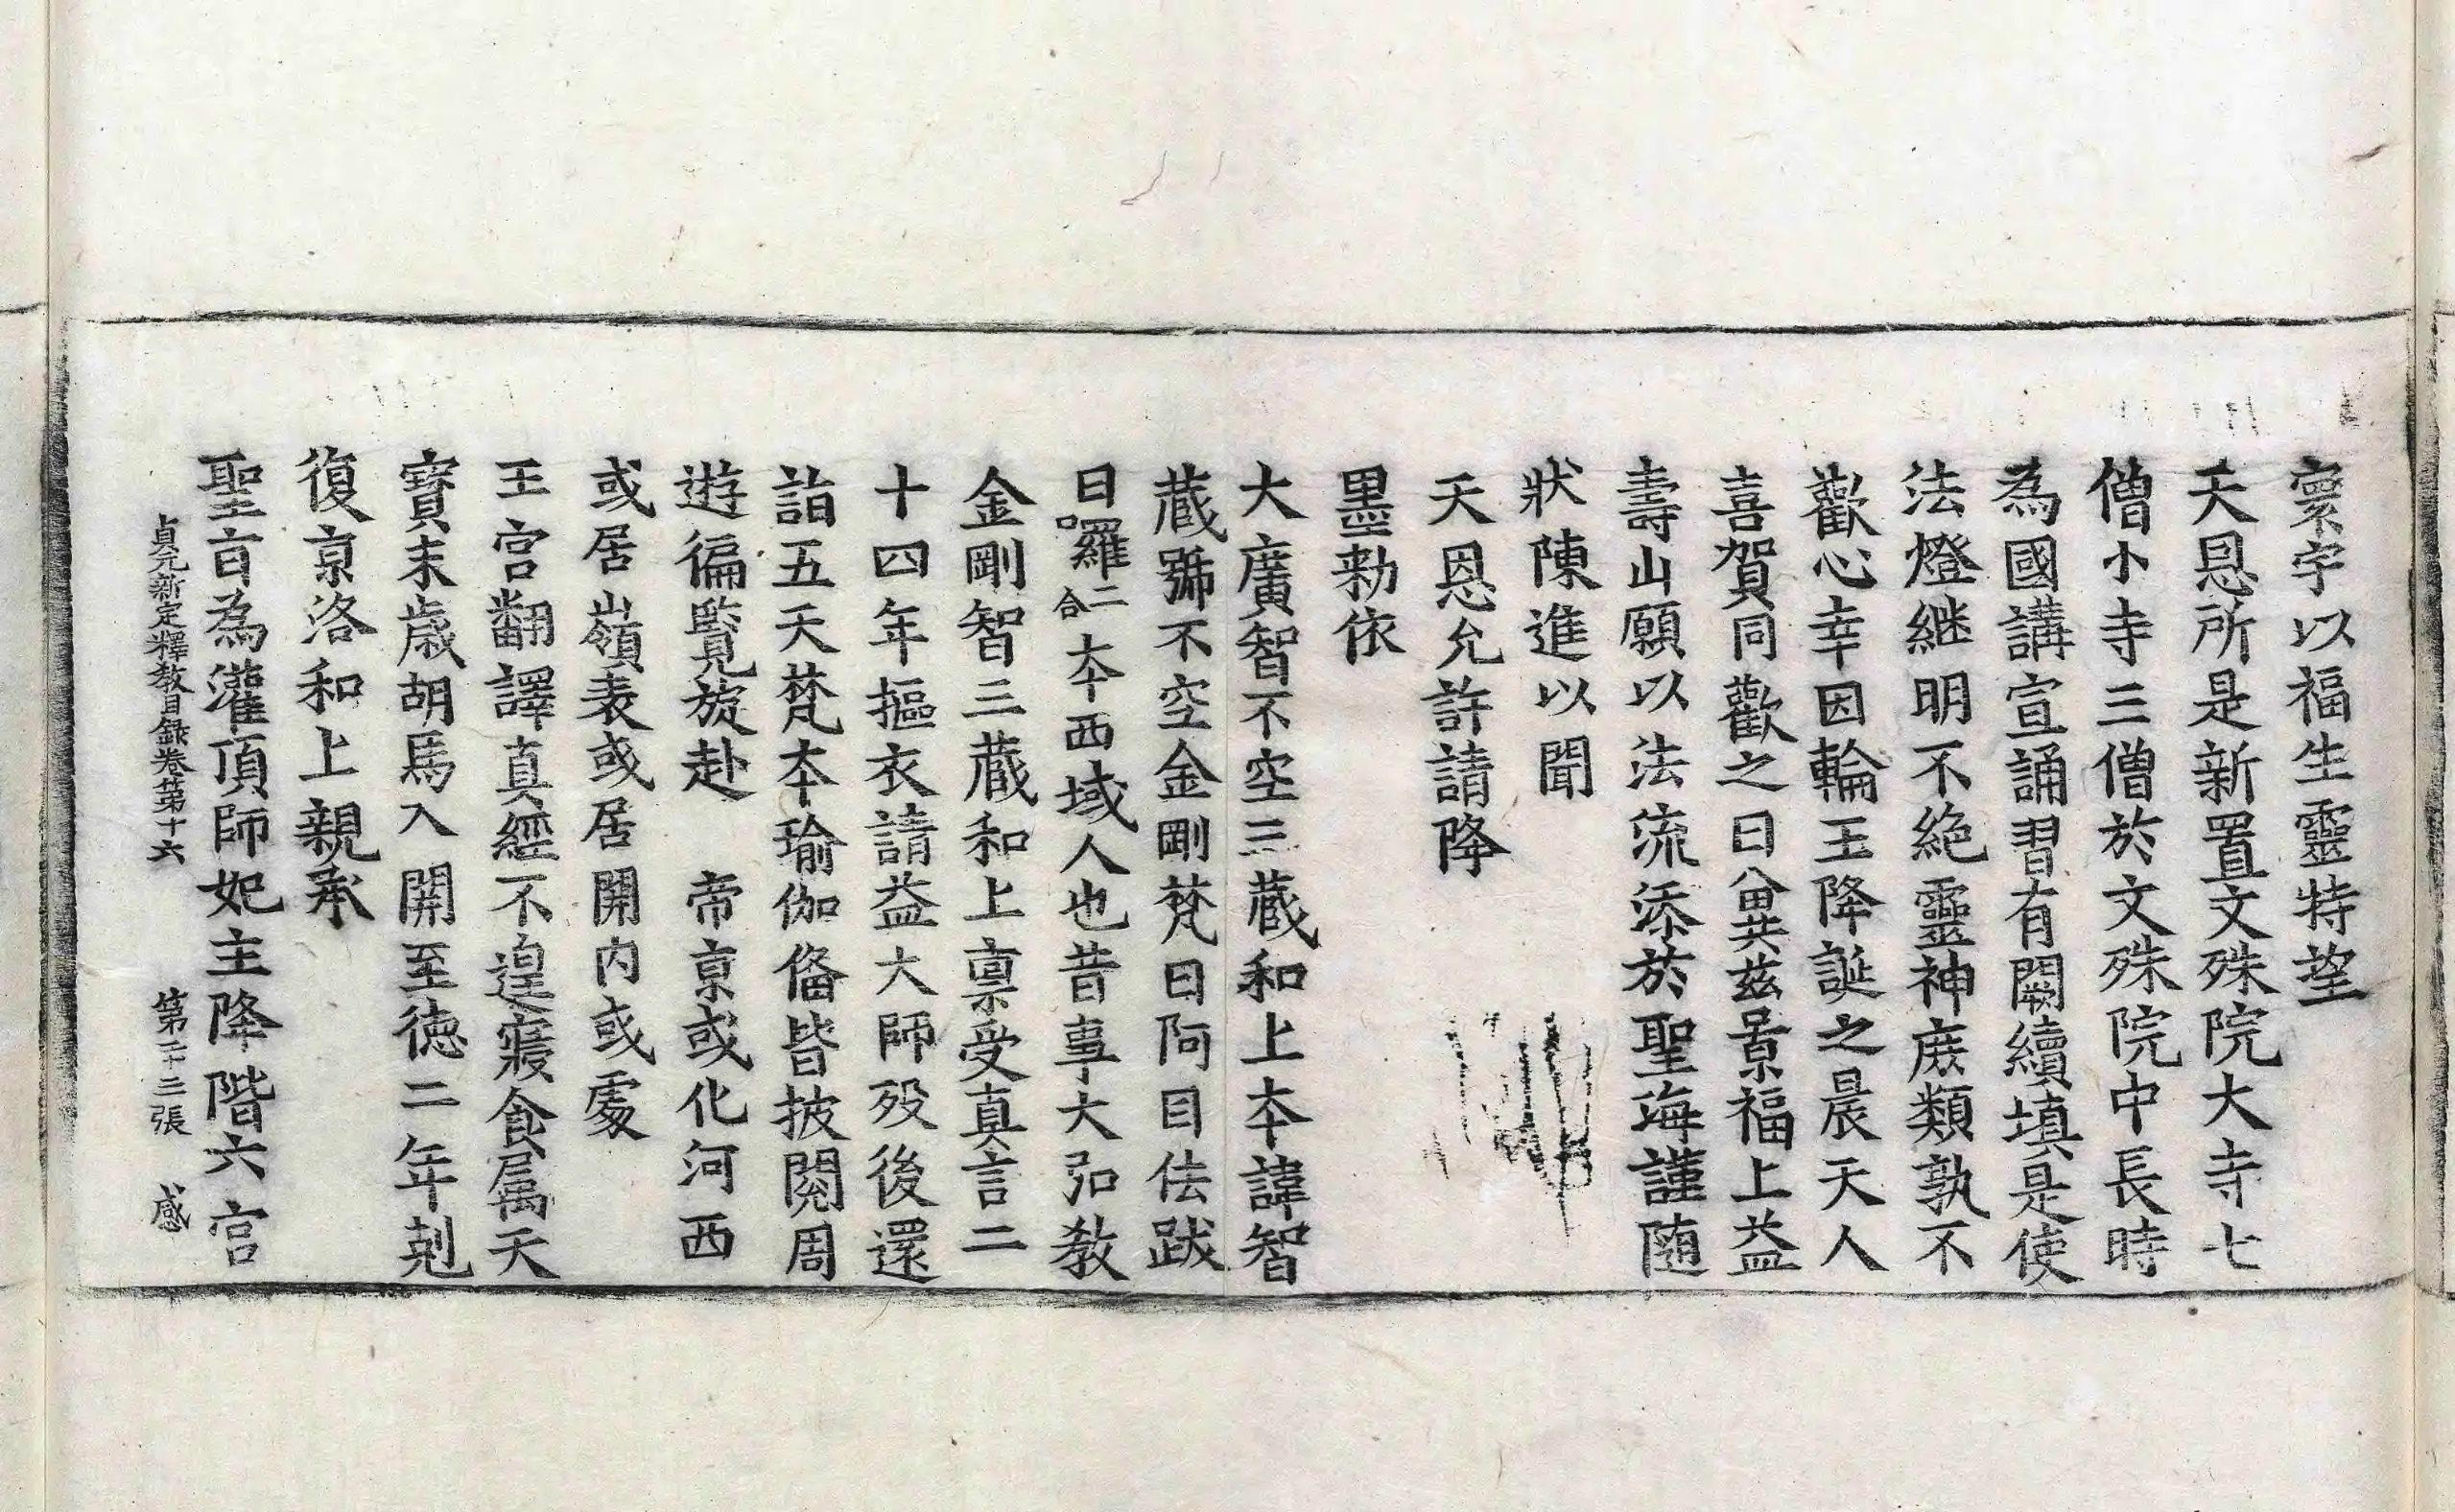 寰宇以福生靈特望
天恩所是新置文殊院大寺七
僧小寺三僧於文殊院中長時
為國講宣誦習有闕續填是使
法燈継明不絶靈神庶類孰不
歡心幸因輪王降誕之晨天人
喜賀同歡之日㒰共兹景福上益
壽山願以法流添於聖海謹随
狀陳進以聞
天恩允許請降
墨勑依
大廣智不空三蔵和上本諱智
蔵號不空金剛梵曰阿目佉跋
日囉二合本西域人也昔事大弘教
金剛智三蔵和上稟受真言二
十四年摳衣請益大師歿後還
詣五天梵本瑜伽俻皆披閱周
遊徧覧旋赴　帝京或化河西
或居嶺表或居開内或處
王宮翻譯真經不遑寢食属天
寶末歳胡馬入開至徳二年剋
復京洛和上親承
聖旨為灌頂師妃主降階六宮
貞元新定釋教目録卷第十六　第二十三張　感